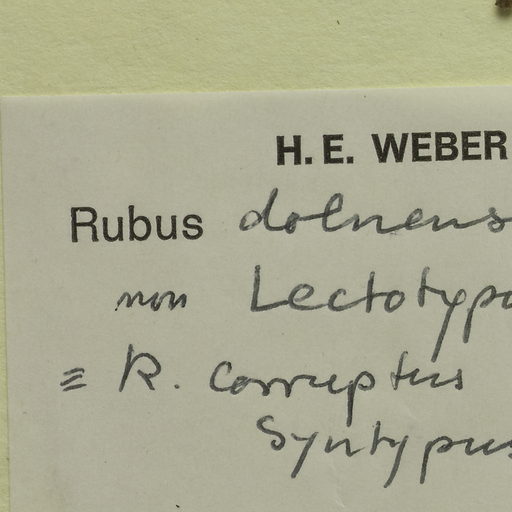 H. E. WEBER
Rubus dolnens
non Lectotypo
≡ R. corruptus
Syntypus